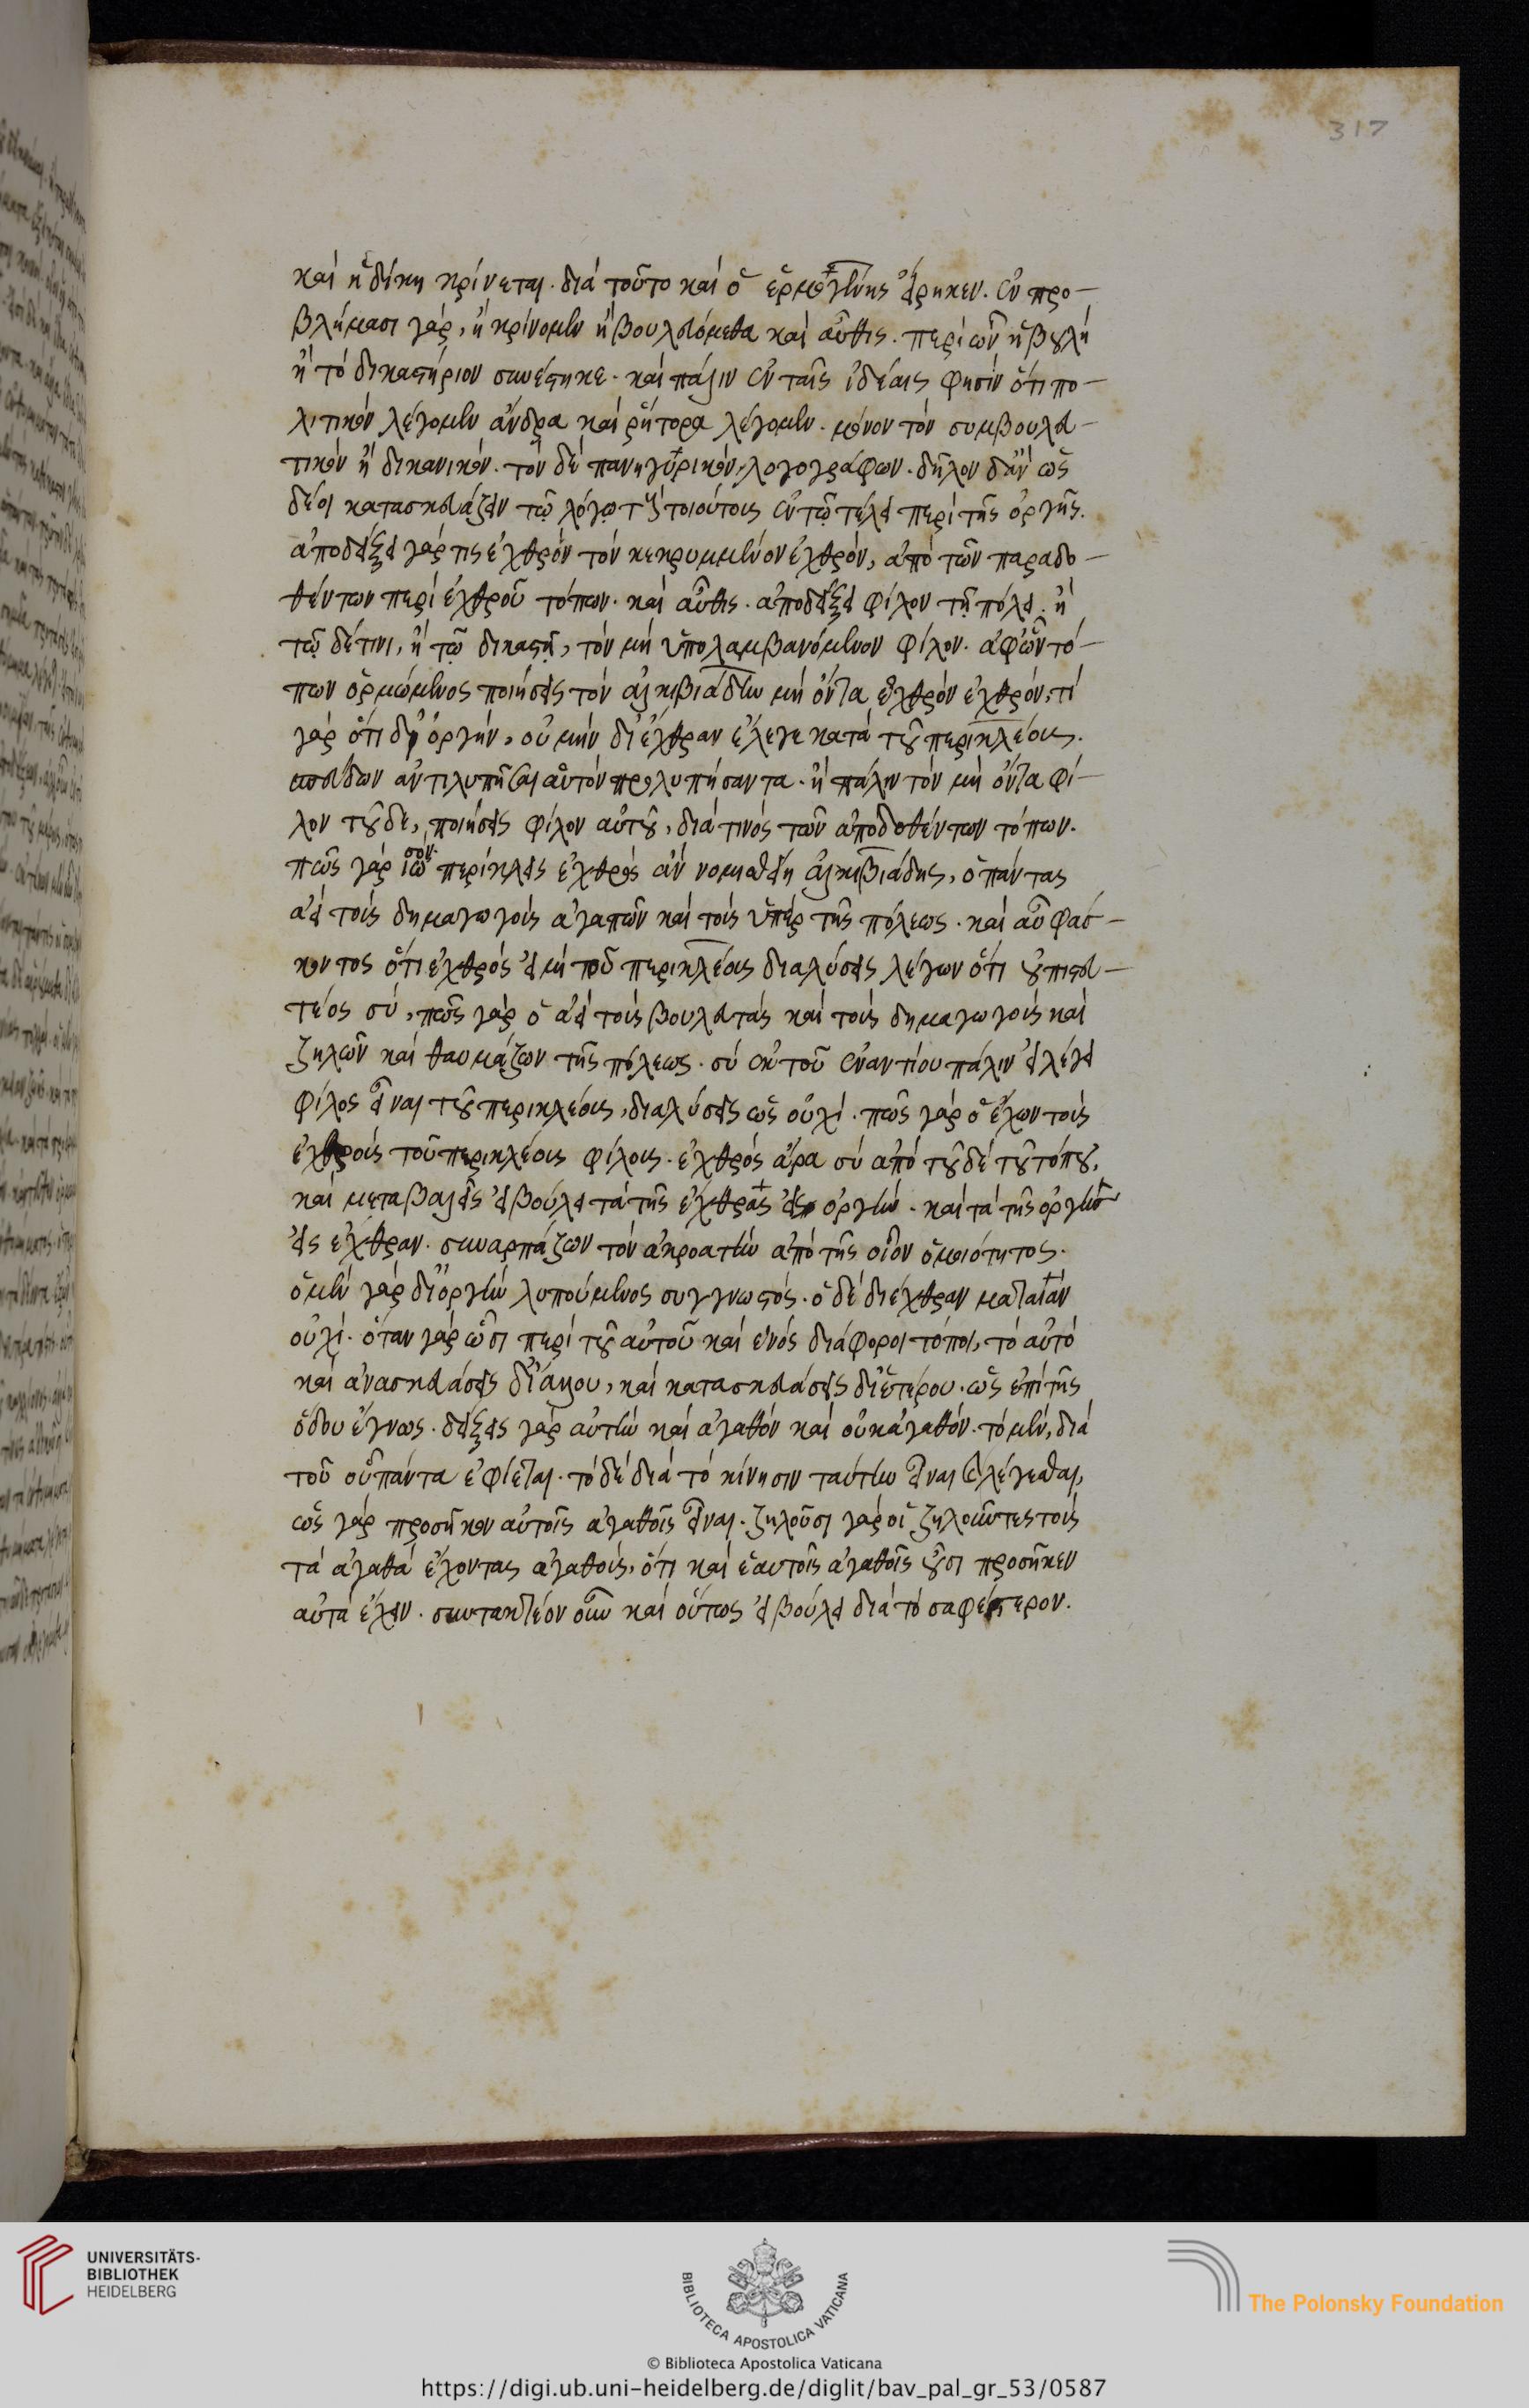 317
καὶ ἡ δίκη κρίνεται. διὰ τοῦτο καὶ ὁ ἑρμογένης εἴρηκεν. ἐν προ-
βλήμασι γὰρ, ἢ κρίνομεν ἢ βουλευόμεθα καὶ αὖθις. περὶ ὧν ἡ βουλὴ
ἢ τὸ δικαστήριον συνέστηκε. καὶ πάλιν ἐν ταῖς ἰδέαις φησὶν ὅτι πο-
λιτικὸν λέγομεν ἄνδρα καὶ ῥήτορα λέγομεν. μόνον τὸν συμβουλευ-
τικὸν ἢ δικανικόν. τὸν δὲ πανηγυρικὸν, λογογράφων. δῆλον δ' ἂν ὡς
δέοι κατασκευάζειν τῷ λόγῳ τοῖς τοιούτοις ἐν τῷ τέλει περὶ τῆς ὀργῆς.
ἀποδείξει γάρ τις ἐχθρὸν τὸν κεκρυμμένον ἐχθρόν, ἀπὸ τῶν παραδο-
θέντων περὶ ἐχθροῦ τόπων. καὶ αὖθις. ἀποδείξει φίλον τῇ πόλει. ἢ
τῷ δέ τινι, ἢ τῷ δικαστῇ, τὸν μὴ ὑπολαμβανόμενον φίλον. ἀφ' ὧν τό-
πων ὁρμώμενος ποιήσεις τὸν ἀλκιβιάδην μὴ ὄντα ἐχθρὸν ἐχθρόν, τί
γὰρ ὅτι δι' ὀργήν, οὐ μὴν δι' ἔχθραν ἔλεγε κατὰ τοῦ περικλέους.
σπεύδων ἀντιλυπῆσαι αὐτὸν προλυπήσαντα. ἢ πάλιν τὸν μὴ ὄντα φί-
λον τοῦδε, ποιήσεις φίλον αὐτοῦ, διά τινος τῶν ἀποδοθέντων τόπων.
σόν.
πῶς γὰρ ἰὼ περίκλεις ἐχθρὸς ἂν νομισθείη ἀλκιβιάδης, ὁ πάντας
ἀεὶ τοὺς δημαγωγοὺς ἀγαπῶν καὶ τοὺς ὑπὲρ τῆς πόλεως. καὶ αὖ φάσ-
κοντος ὅτι ἐχθρὸς εἰμὶ τοῦ περικλέους διαλύσεις λέγων ὅτι οὐ πιστευ-
τέος σύ, πῶς γὰρ ὁ ἀεὶ τοὺς βουλευτὰς καὶ τοὺς δημαγωγοὺς καὶ
ζηλῶν καὶ θαυμάζων τῆς πόλεως. σὺ ἐκ τοῦ ἐναντίου πάλιν εἰ λέγει
φίλος εἶναι τοῦ περικλέους, διαλύσεις ὡς οὐχί. πῶς γὰρ ὁ ἔχων τοὺς
ἐχθροὺς τοῦ περικλέους φίλους. ἐχθρὸς ἄρα σὺ ἀπὸ τοῦδε τοῦ τόπου,
καὶ μεταβαλεῖς εἰ βούλει τὰ τῆς ἔχθρας εἰς ὀργήν. καὶ τὰ τῆς ὀργῆς
εἰς ἔχθραν. συναρπάζων τὸν ἀκροατὴν ἀπὸ τῆς οἷον ὁμοιότητος.
ὁ μὲν γὰρ δι' ὀργὴν λυπούμενος συγγνωστός. ὁ δὲ δι' ἔχθραν ματαίαν
οὐχί. ὅταν γὰρ ὦσι περὶ τοῦ αὐτοῦ καὶ ἑνὸς διάφοροι τόποι, τὸ αὐτὸ
καὶ ἀνασκευάσεις δι' ἄλλου, καὶ κατασκευάσεις δι' ἑτέρου. ὡς ἐπὶ τῆς
ὅδου ἔγνως. δείξεις γὰρ αὐτὴν καὶ ἀγαθὸν καὶ οὐκ ἀγαθόν. τὸ μὲν, διὰ
τοῦ οὗ πάντα ἐφίεται. τὸ δὲ διὰ τὸ κίνησιν ταύτην εἶναι λέγεσθαι,
ὡς γὰρ προσῆκον αὐτοῖς ἀγαθοῖς εἶναι. ζηλοῦσι γὰρ οἱ ζηλοῦντες τοὺς
τὰ ἀγαθὰ ἔχοντας ἀγαθοὺς, ὅτι καὶ ἑαυτοῖς ἀγαθοῖς οὖσι προσῆκεν
αὐτὰ ἔχειν. συντακτέον οὖν καὶ οὕτως εἰ βούλει διὰ τὸ σαφέστερον.
UNIVERSITÄTS-
BIBLIOTHEK
HEIDELBERG
BIBLIOTECA APOSTOLICA VATICANA
The Polonsky Foundation
© Biblioteca Apostolica Vaticana
https://digi.ub.uni-heidelberg.de/diglit/bav_pal_gr_53/0587